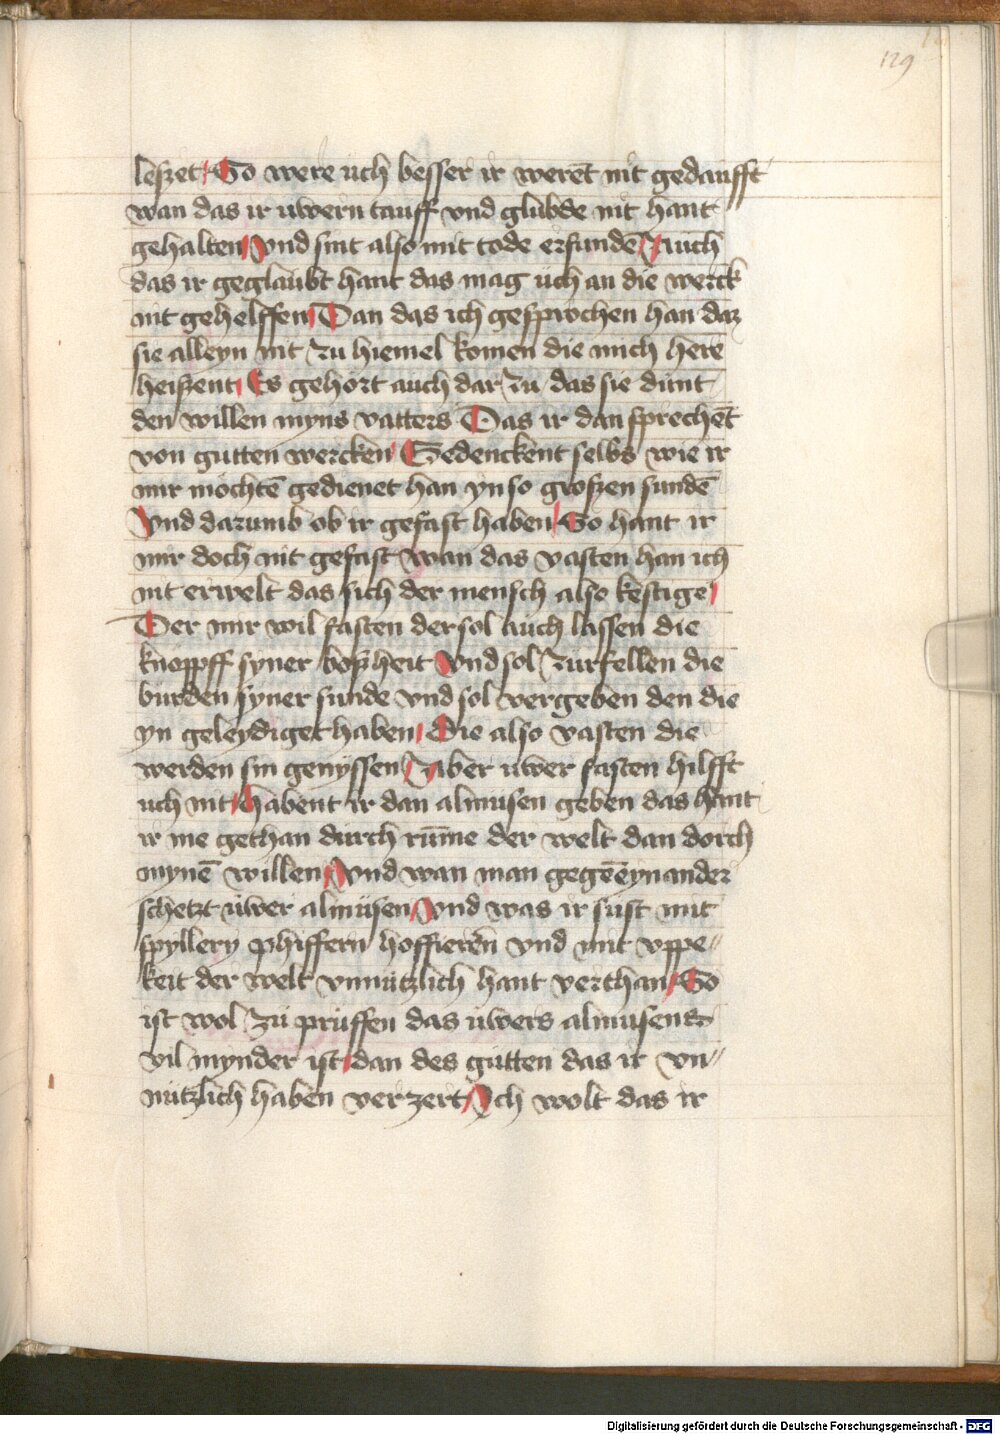 129
leszet So were uch besser ir werēt nit gedaufft
wan das ir uwern tauff vnd glubde nit hant
gehalten Vnd sint also mit tode erfundē Auch
das ir geglaubt hant das mag uch an die werck
nit gehelffen Dan das ich gesprochen han daz
sie alleyn nit zu hiemel komen die mich here
heiszent Es gehort auch dar zu das sie dunt
den willen myns vatters Das ir dan sprechēt
von gutten wercken Gedenckent selbs wie ir
mir mochtē gedienet han yn so groszen sundē
Vnd darumb ob ir gefast haben So hant ir
mir doch nit gefast wan das vasten han ich
nit erwelt das sich der mensch also kestige
Der mir wil fasten der sol auch lassen die
knoppff syner boszheit Vnd sol zurfellen die
burden syner sunde vnd sol vergeben den die
yn geleydiget haben Die also vasten die
werden sin genyssen Aber uwer fasten hilfft
uch nit Habent ir dan almusen geben das hant
ir me gethan durch rūme der welt dan dorch
mynē willen Vnd wan man gegēeynander
schetzt uwer almusen Vnd was ir sust mit
spyllery phiffern hoffieren vnd mit vppe„
keit der welt vnnutzlich hant verthan So
ist wol zu pruffen das uwers almusens
vil mynder ist dan des gutten das ir vn„
nutzlich haben verzert Ich wolt das ir
Digitalisierung gefördert durch die Deutsche Forschungsgemeinschaft - DFG